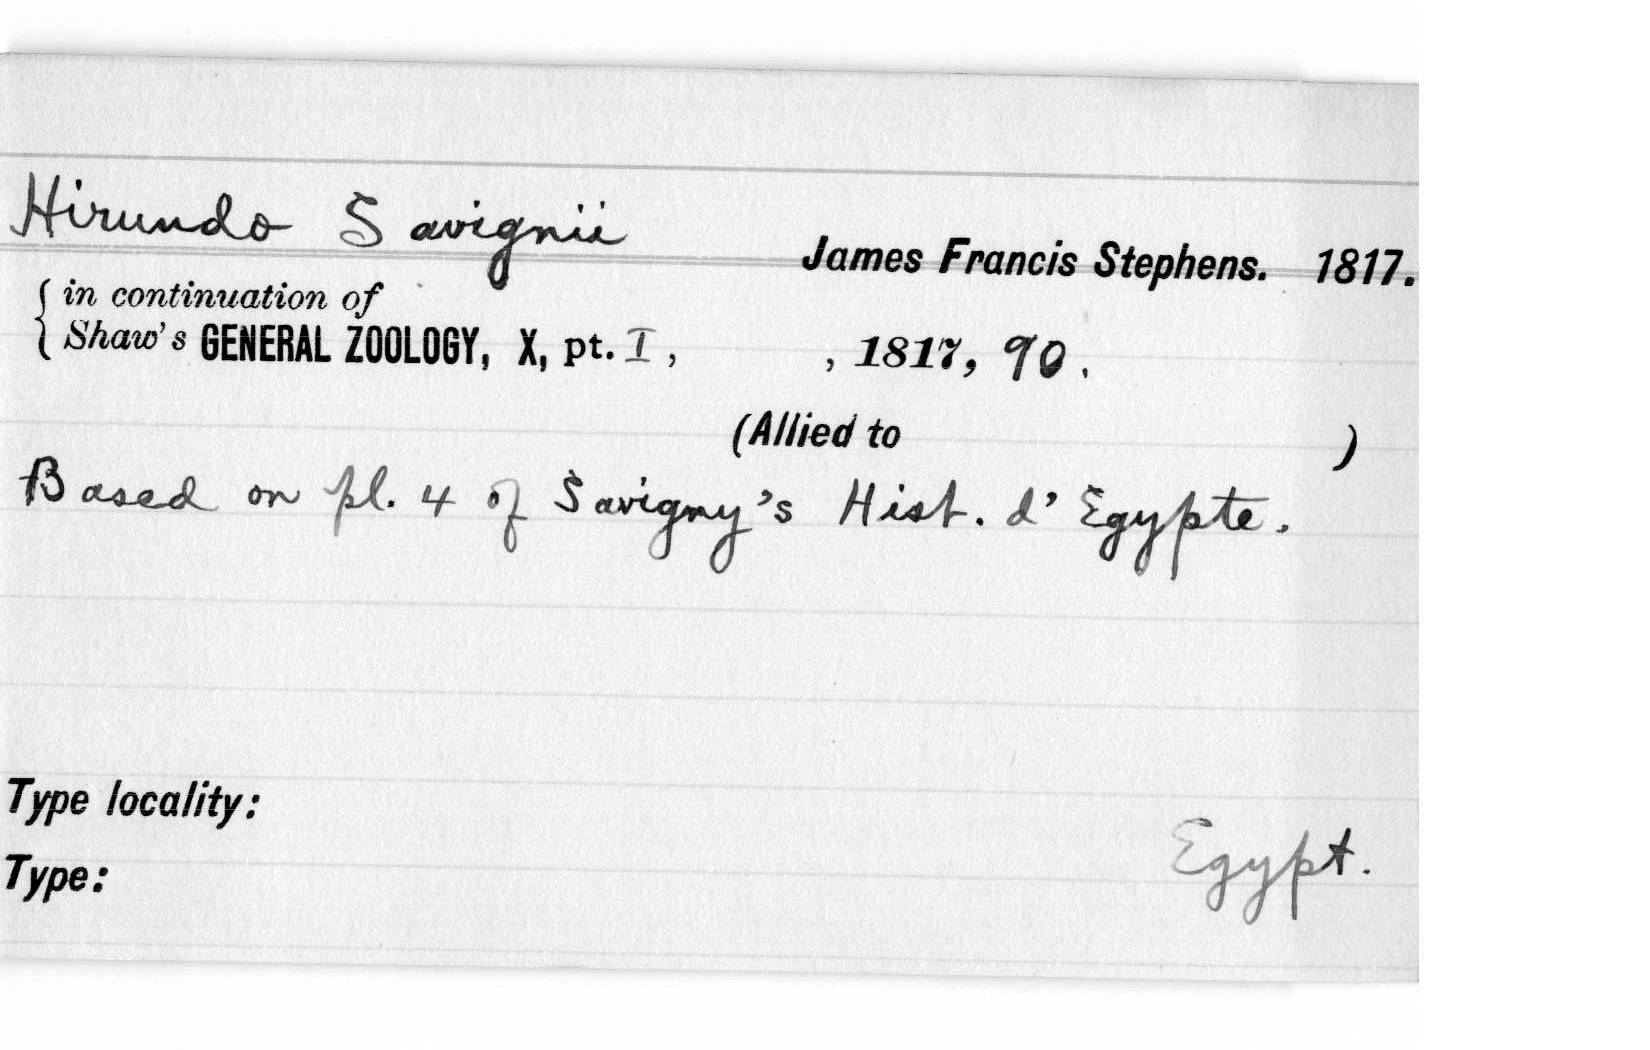 Hirundo Savignii
James Francis Stephens. 1817.
{ in continuation of
Shaw's GENERAL ZOOLOGY, X, pt. I, , 1817, 90.
(Allied to )
Based on pl. 4 of Savigny's Hist. d'Egypte.
Type locality:
Egypt.
Type: